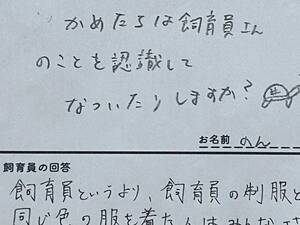 かめたちは飼育員さん
のことを認識して
なついたりしますか?
お名前 のん
飼育員の回答
飼育員というより、飼育員の制服と
同じ色の服を着た人はみんな